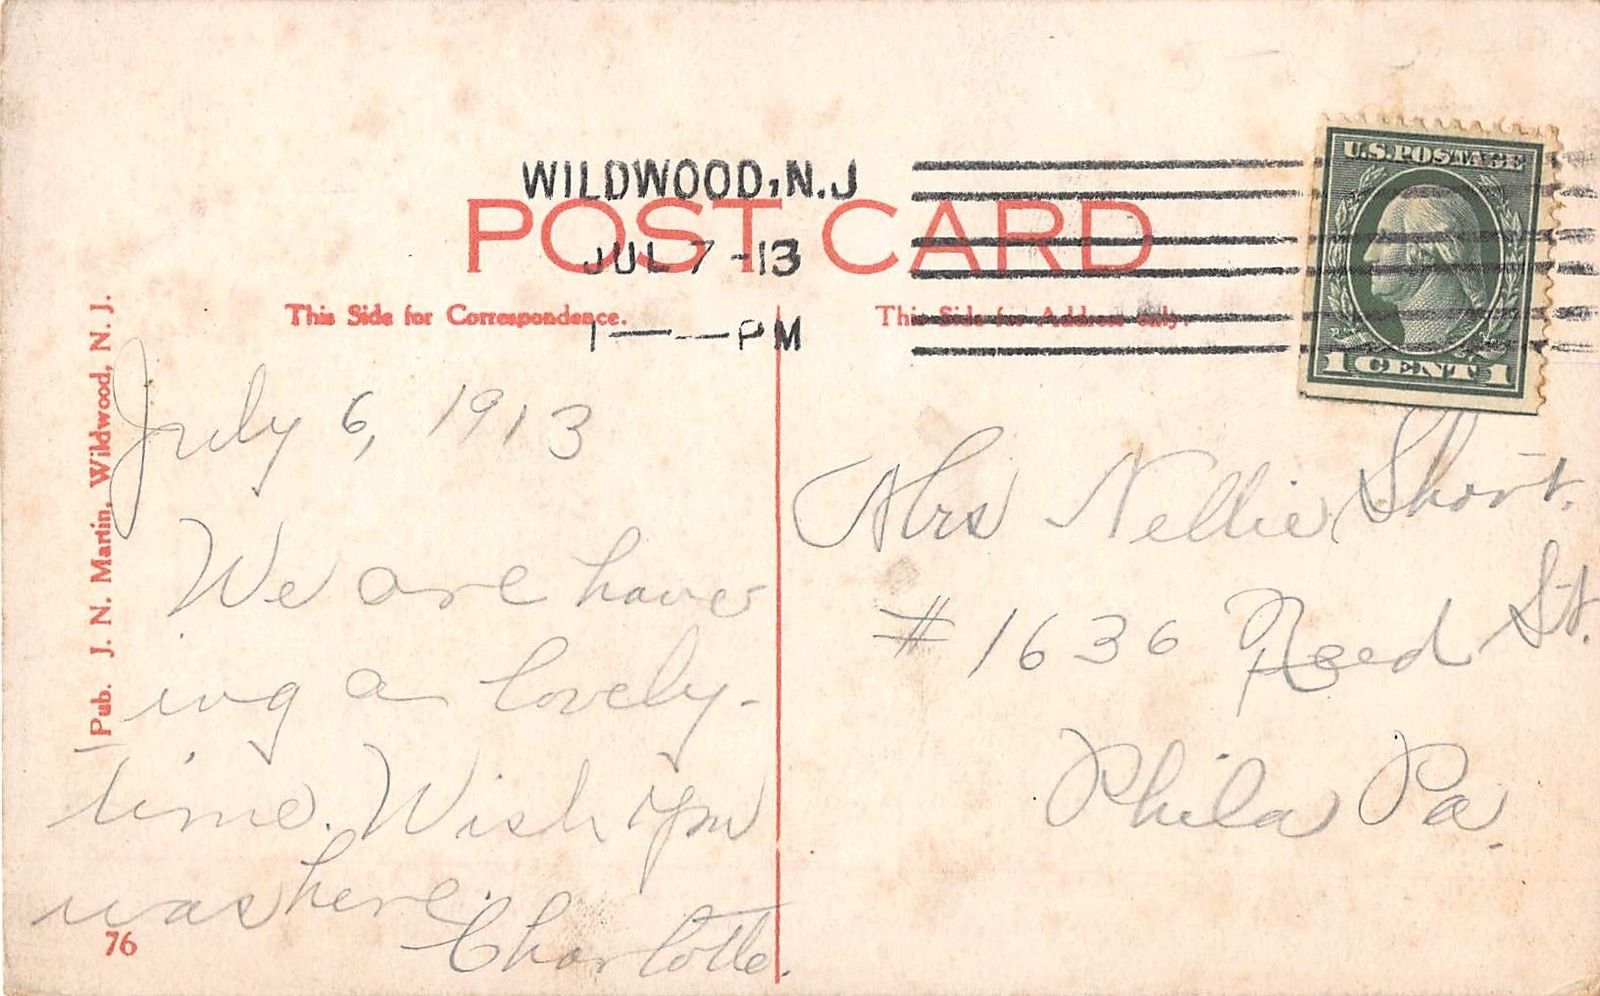 WILDWOOD, N.J
POST CARD
JUL 7 -13
1 — PM
U.S. POSTAGE
1 CENT 1
This Side for Correspondence.
This Side for Address only.
Pub. J. N. Martin, Wildwood, N. J.
July 6, 1913
We are haveing
ing a lovely
time. Wish you
was here.
Charlotte.
76
Mrs Nellie Short.
# 1636 Reed St.
Phila Pa.